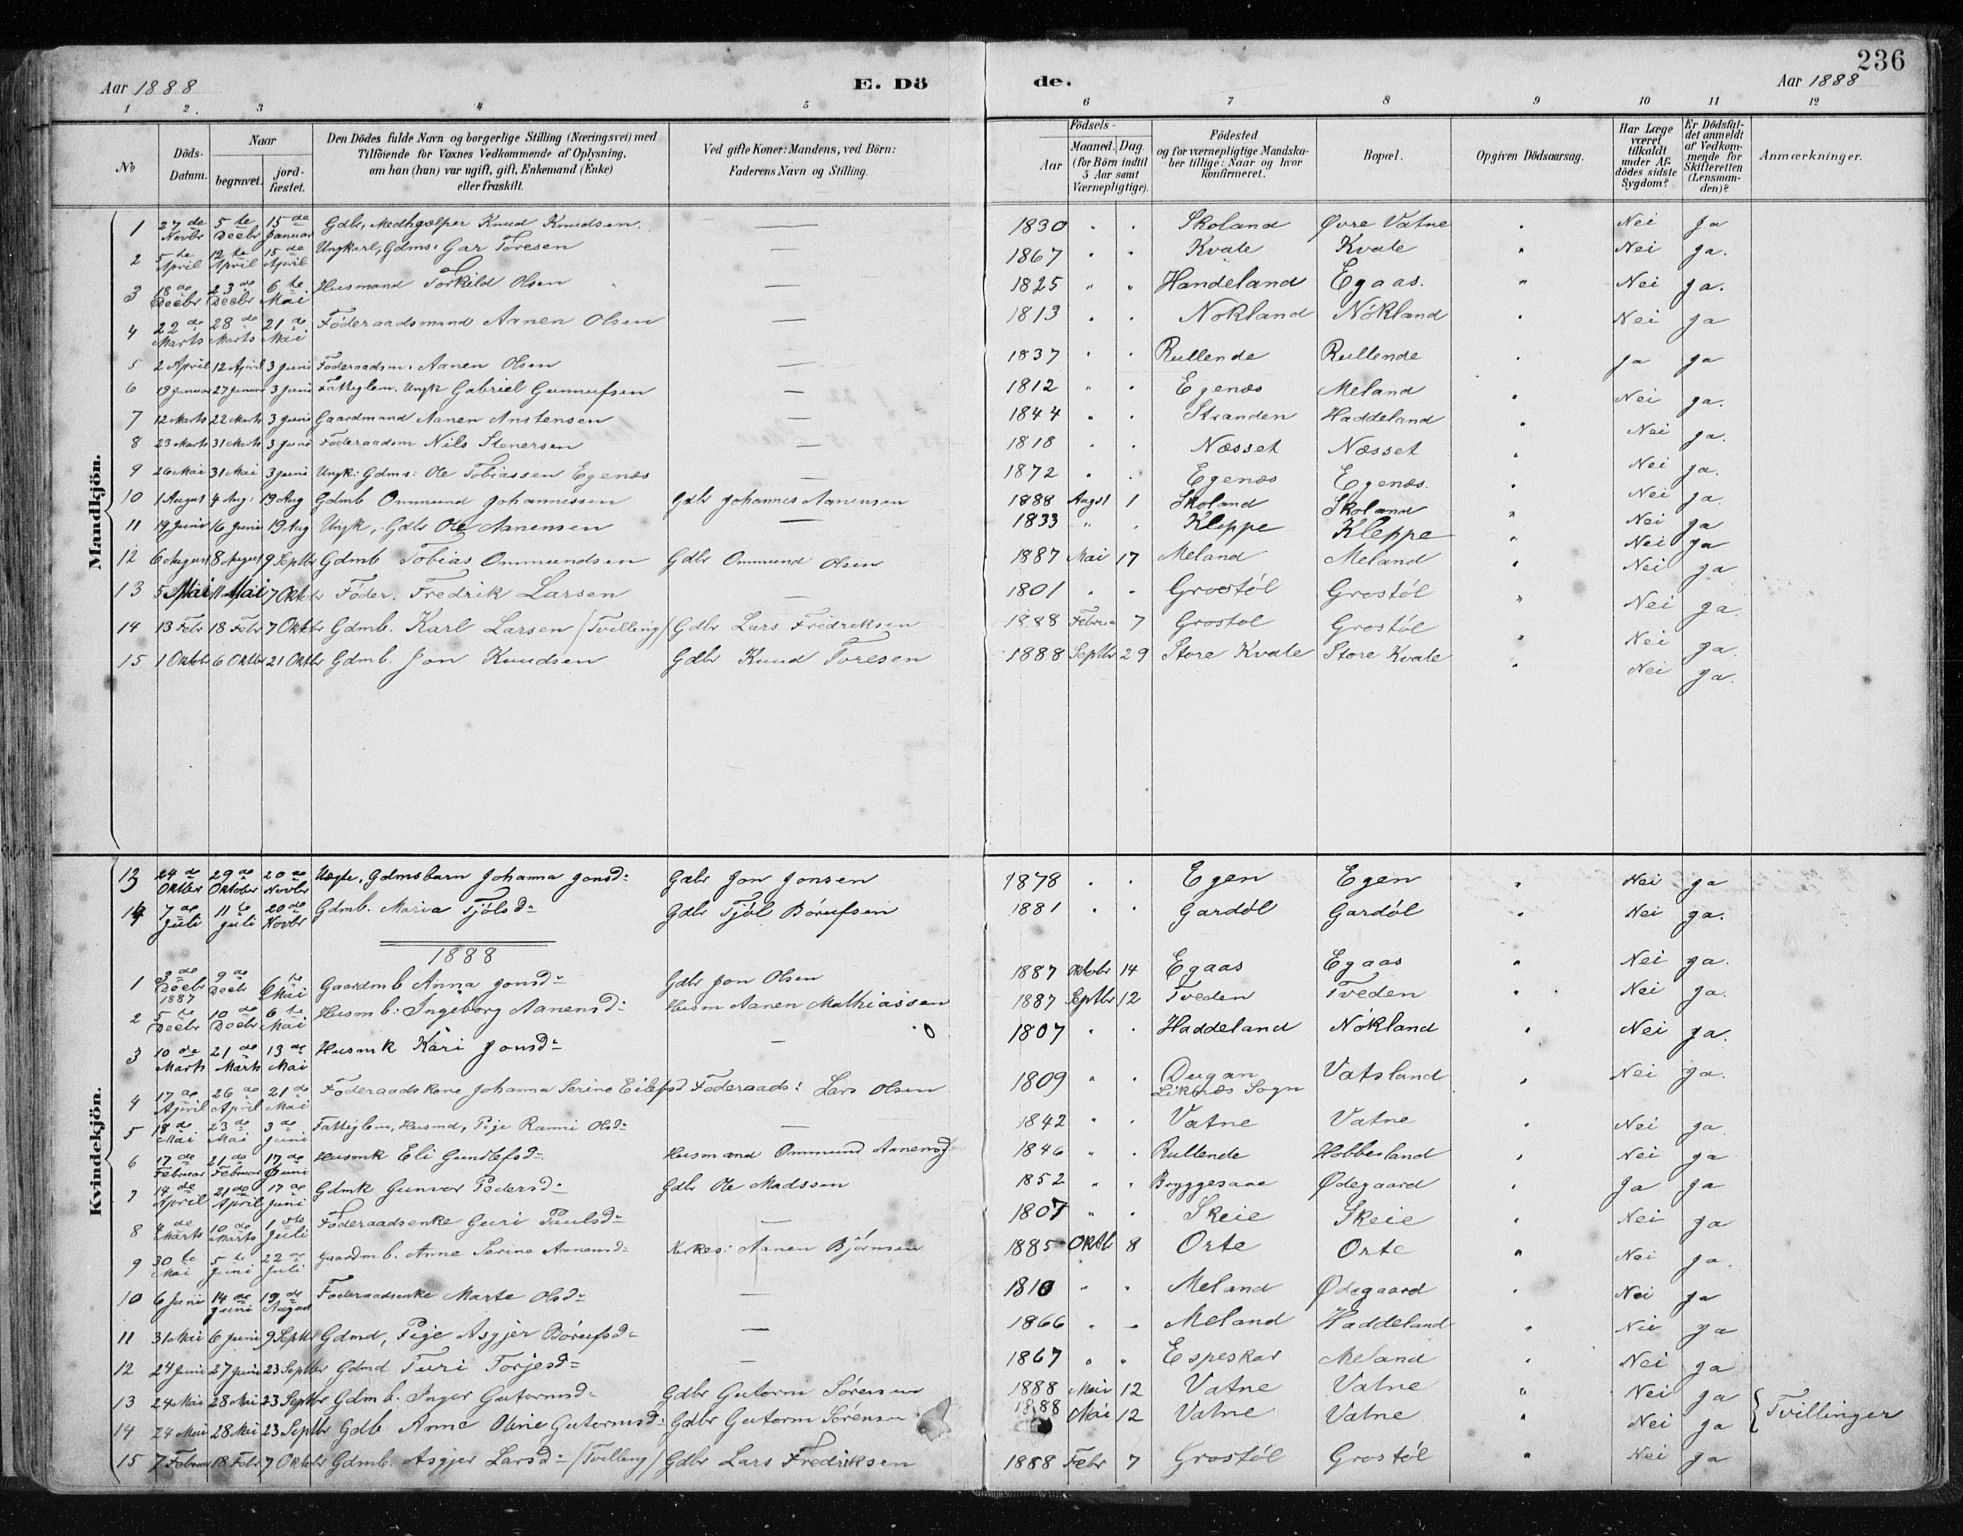 236
Aar 1888 E. Dö de. Aar 1888
1 2. 3 4 5 6 7 8 9 10 11 12
No Döds-Datum. Naar begravet. jordfæstet. Den Dödes fulde Navn og borgerlige Stilling (Næringsvei) med Tilföiende for Voxnes Vedkommende af Oplysning, om han (hun) var ugift, gift, Enkemand (Enke) eller fraskilt. Ved gifte Koner: Mandens, ved Börn: Faderens Navn og Stilling. Födsels- Aar Maaned. Dag. (for Börn indtil 5 Aar samt Værnepligtige). Födested og for værnepligtige Mandskaber tillige: Naar og hvor konfirmeret. Bopæl. Opgiven Dödsaarsag. Har Læge været tilkaldt under Afdödes sidste Sygdom? Er Dödsfaldet anmeldt af Vedkommende for Skifteretten (Lensmanden)? Anmærkninger.
Mandkjön.
1 27de Novbr 5te Decbr 15de Januar Gdbr, Medhjælper Knud Knudsen. — 1830 " " Skoland Øvre Vatne " Nei Ja
2 5te April 12te April 15de April Ungkarl, Gdms: Gar Toresen — 1867 " " Kvale Kvale " Nei Ja.
3 18de Decbr 23de Decbr 6te Mai Husmand Torkild Olsen — 1825 " " Handeland Egaas. " Nei Ja.
4 22de Marts 28de Marts 21de Mai Föderaadsmand Aanen Olsen — 1813 " " Nökland Nökland " Nei Ja
5 2 April 12 April 3 Juni Föderaadsm: Aanen Olsen — 1837 " " Rullende Rullende " Ja Ja
6 19 Januar 27 Januar 3 Juni Fattiglem. Ungk Gabriel Gunnufsen — 1812 " " Egenæs Meland " Nei Ja.
7 12 Marts 22 Marts 3 Juni Gaardmand Aanen Anstensen — 1844 " " Stranden Haddeland " Nei Ja.
8 23 Marts 31 Marts 3 Juni Föderaadsm Nils Stenersen — 1818 " " Næsset Næsset " Nei Ja.
9 26 Mai 31 Mai 3 Juni Ungk: Gdms: Ole Tobiassen Egenæs 1872 " " Egenæs Egenæs. " Nei Ja.
10 1 August 4 Aug: 19 Aug Gdmb Ommund Johannessen Gdbr Johannes Aanensen 1888 Augst 1 Skoland Skoland " Nei Ja
11 14 Juni 16 Juni 19 Aug Ungk, Gdbr Ole Aanensen — 1833 " " Kleppe Kleppe " Nei Ja
12 6 August 8 August 9 Septbr Gdmb Tobias Ommundsen Gdbr Ommund Olsen 1887 Mai 17 Meland Meland " Nei Ja
13 5 Mai 11 Mai 7 Oktbr Föder. Fredrik Larsen — 1801 " " Grostöl Grostöl " Nei Ja.
14 13 Febr 18 Febr 7 Oktbr Gdmb. Karl Larsen (Tvilling) Gdbr Lars Fredriksen 1888 Februa 7 Grostol Grostöl " Nei Ja.
15 1 Oktbr 6 Oktbr 21 Oktbr Gdmb. Jon Knudsen Gdbr Knud Toresen 1888 Septbr 29 Store Kvale Store Kvale " Nei Ja.
Kvindekjön.
13 24de Oktbr 29de Oktober 20de Novbr Gdmsbarn Johanna Jonsd: Gdbr Jon Jonsen 1878 " " Egen Egen " Nei Ja
14 7de Juli 11te Juli 20de Novbr Gdmb. Maria Tjölsd: Gdbr Tjöl Börufsen 1881 " " Gardöl Gardöl " Nei Ja.
1888
1 3de Decbr 1887 9de Decbr 6te Mai Gaardmb Anna Jonsd: Gdbr Jon Olsen 1887 Oktobr 14 Egaas Egaas " Nei Ja.
2 5te Decbr 10de Decbr 6te Mai Husmb: Ingeborg Aanensd: Husm Aanen Mathiassen 1887 Septbr 12 Tveden Tveden " Nei Ja.
3 10de Marts 21de Marts 13de Mai Husmk Kari Jonsd: — 1807 " " Haddeland Nökland " Nei Ja.
4 17de April 26de April 21de Mai Föderaadskone Johanna Serine Eilefsd Föderaads: Lars Olsen 1809 " " Dugan Liknæs Sogn Vatsland " Nei Ja.
5 18de Mai 23de Mai 3de Juni Fattiglem, Husmd, Pige Ranni Olsd: — 1842 " " Vatne Vatne " Nei Ja.
6 17de Februar 21de Februar 17de Juni Husmk Eli Gundlefsd: Husmand Ommund Aanensen 1846 " " Rullende Hobbesland " Nei Ja
7 14de April 21de April 17de Juni Gdmk Gunvor Pedersd: Gdbr Ole Madssen 1852 " " Bryggesaae Ødegaard " Ja Ja
8 4de Marts 10de Marts 1ste Juli Föderaadsenke Guri Paulsd: — 1807 " " Skeie Skeie " Nei Ja
9 30te Mai 5te Juni 22de Juli Gaardmb. Anne Serine Aanensd: Kirkes: Aanen Bjørnsen 1885 Oktb 8 Orte Orte " Nei Ja.
10 6 Juni 14de Juni 19de August Föderaadsenke Marte Olsd: — 1810 " " Meland Ødegaard " Nei Ja
11 31 Mai 6 Juni 9 Septbr Gdmd, Pige Asgjer Börufsd: — 1866 " " Meland Haddeland " Nei Ja
12 24 Juni 27 Juni 23 Septbr Gdmd Turi Torjesd: — 1867 " " Espeskar Meland " Nei Ja
13 24 Mai 28 Mai 23 Septbr Gdmb: Inger Gutormsd: Gdbr Gutorm Sörensen 1888 Mai 12 Vatne Vatne " Nei Ja
14 24 Mai 28 Mai 23 Septbr Gdb Anne Oline Gutormsd: Gdbr Gutorm Sörensen 1888 Mai 12 Vatne Vatne " Nei Ja { Tvillinger
15 7 Februar 18 Febr 7 Oktobr Gdmb. Asgjer Larsd: (Tvilling) Gdbr Lars Fredriksen 1888 Febr 7 Grostöl Grostöl " Nei Ja